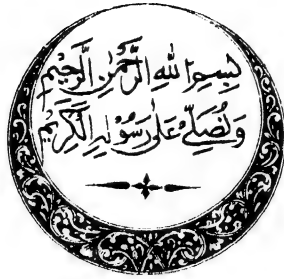 بِسْمِ اللهِ الرَّحْمٰنِ الرَّحِيْمِ
وَنُصَلِّيْ عَلٰى رَسُوْلِهِ الْكَرِيْمِ